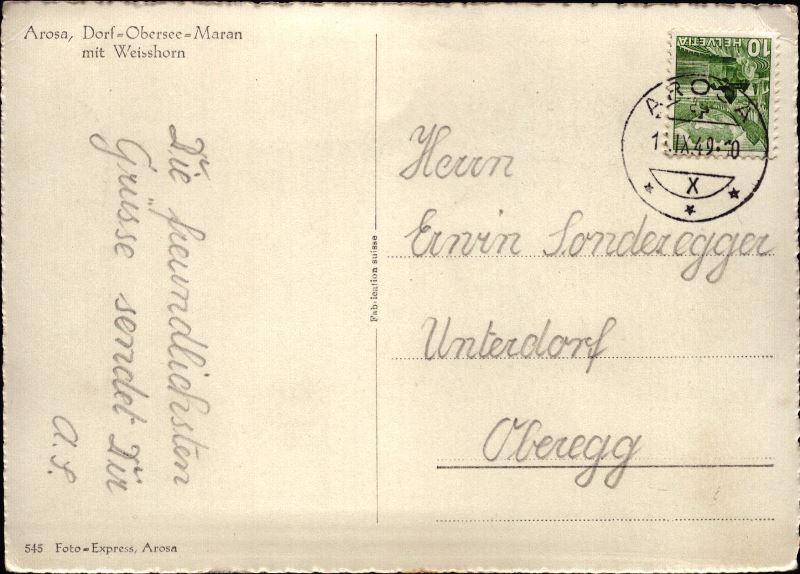 Arosa, Dorf=Obersee=Maran
mit Weisshorn
Die freundlichsten
Grüsse sendet Dir
A. S.
545 Foto=Express, Arosa
Fabrication suisse
HELVETIA 10
AROSA
IX.49
X
Herrn
Erwin Sonderegger
Unterdorf
Oberegg